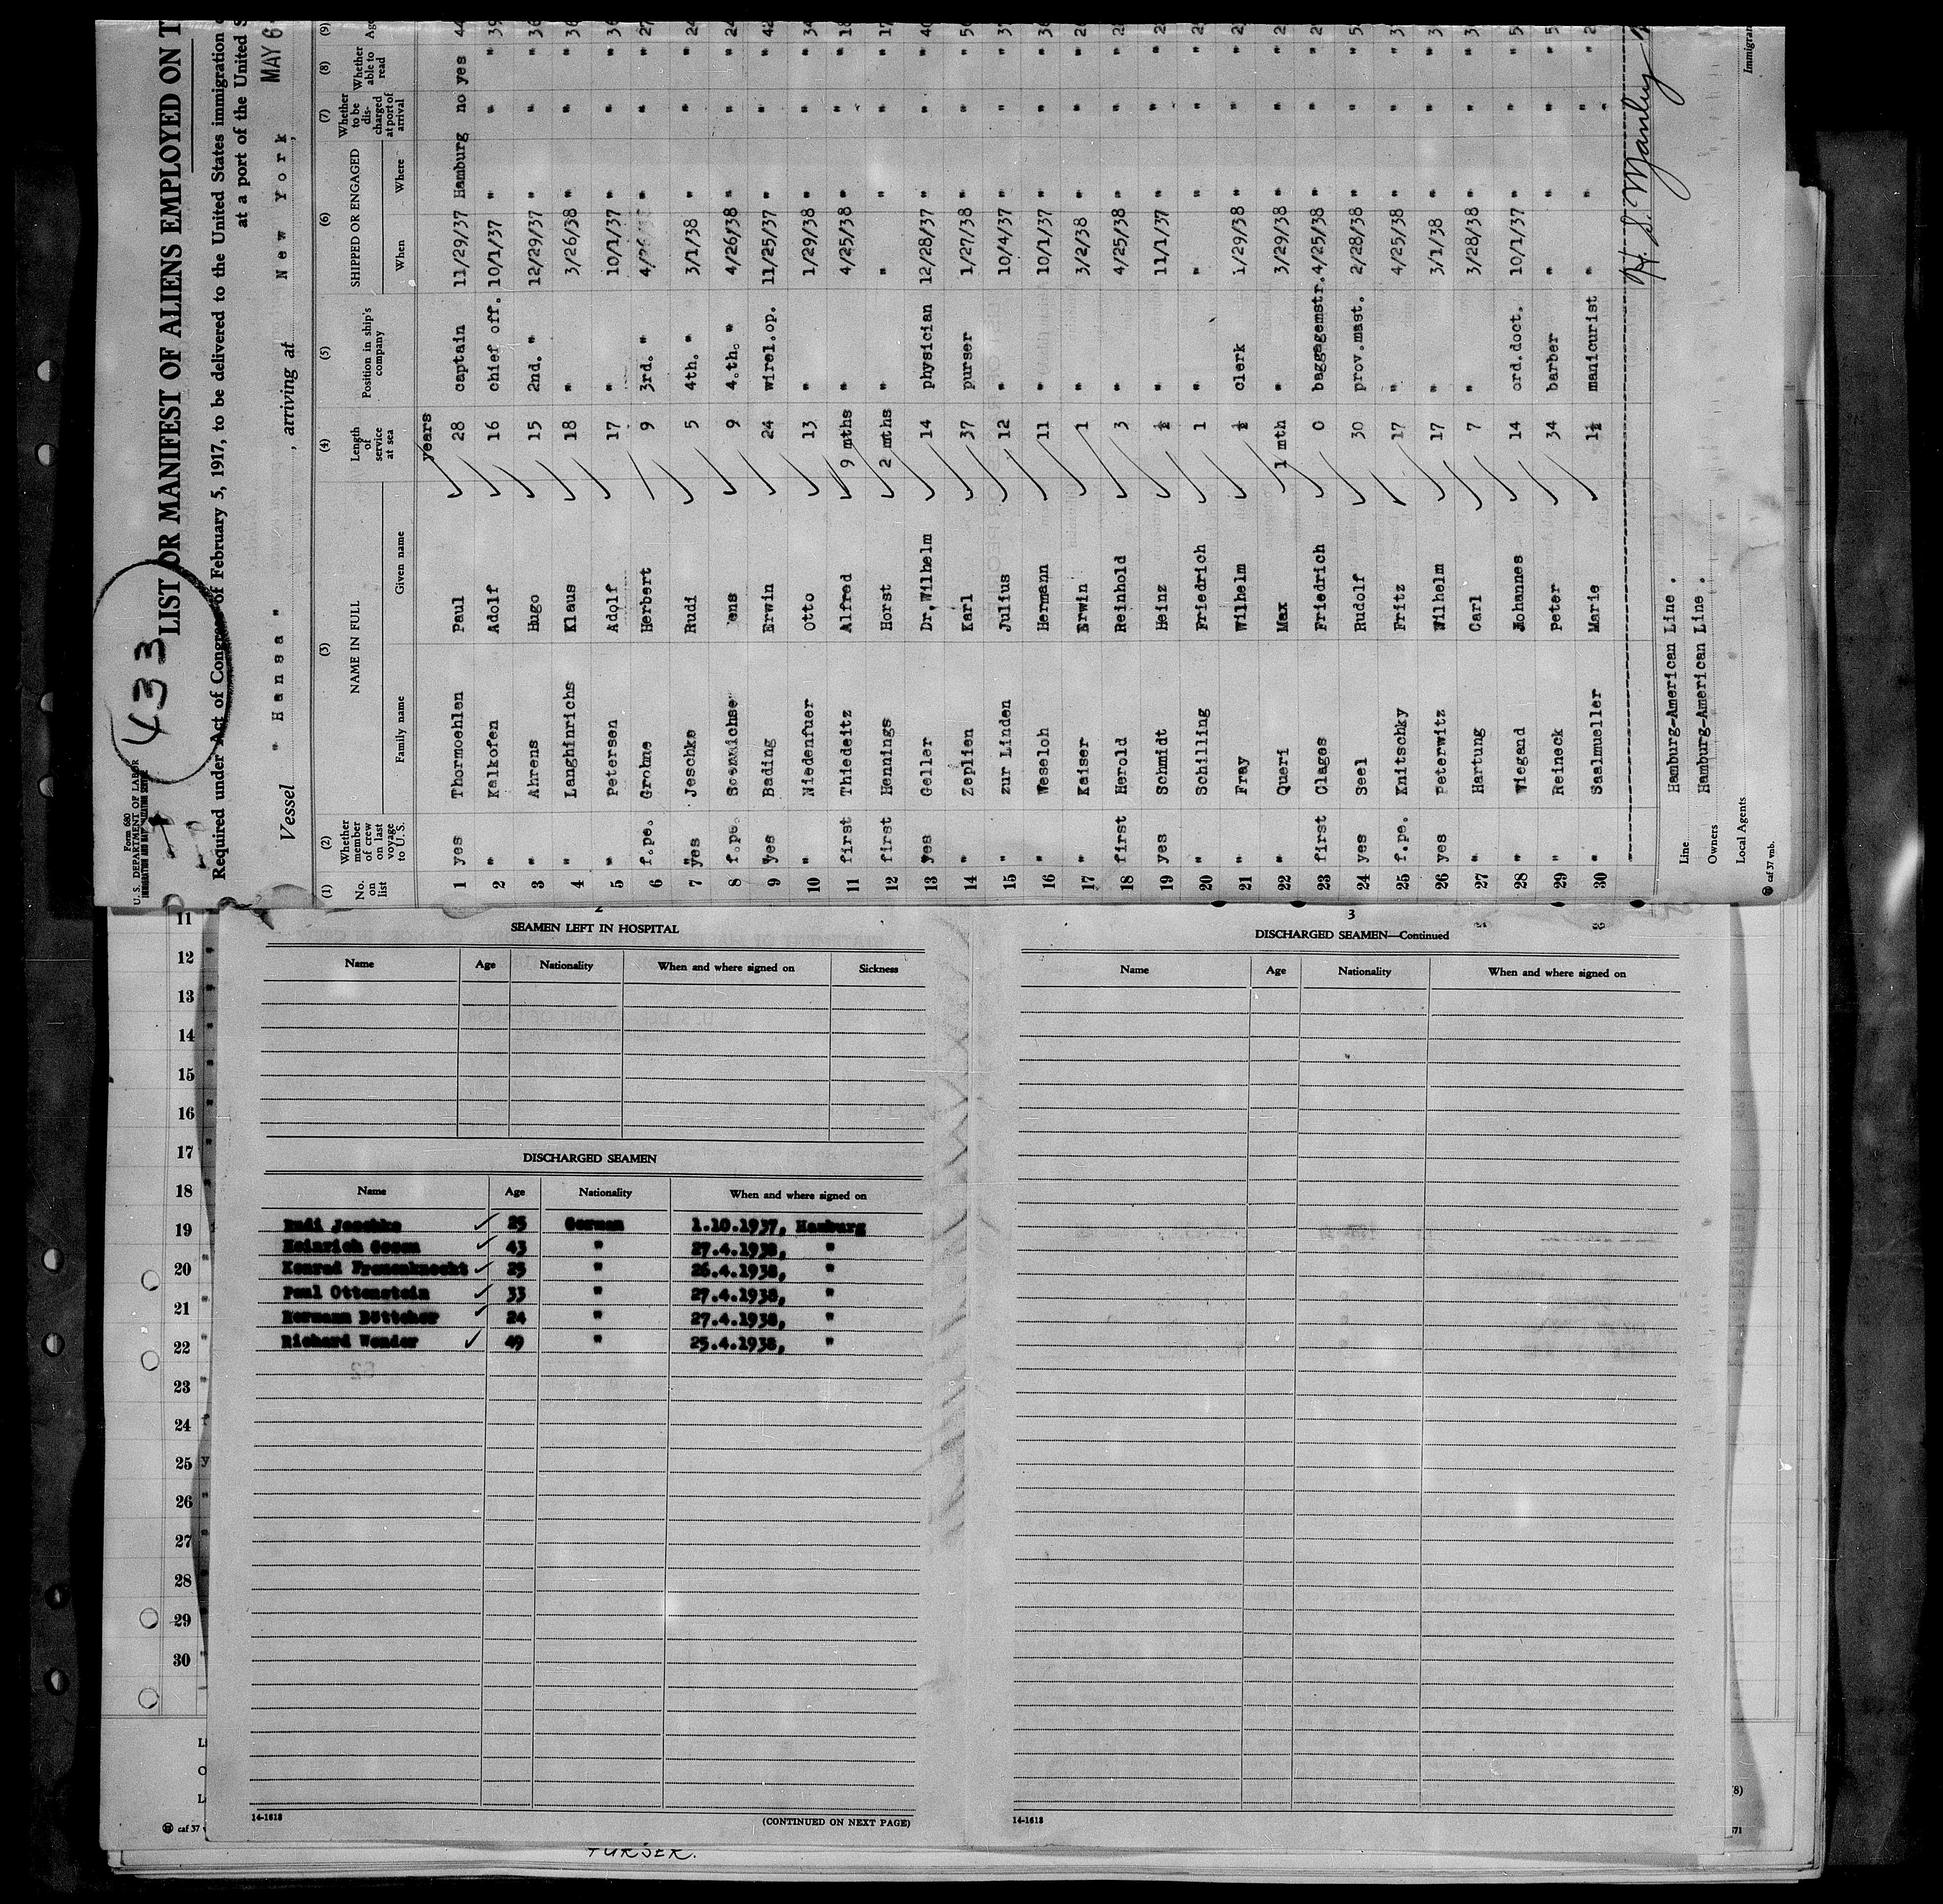 Form 680
U. S. DEPARTMENT OF LABOR
IMMIGRATION AND NATURALIZATION SERVICE
433
LIST OR MANIFEST OF ALIENS EMPLOYED ON T
Required under Act of Congress of February 5, 1917, to be delivered to the United States immigration
at a port of the United S
Vessel " Hansa " , arriving at New York, MAY 6
(1) (2) (3) (4) (5) (6) (7) (8) (9)
No. on list Whether member of crew on last voyage to U. S. NAME IN FULL Family name Given name Length of service at sea Position in ship's company SHIPPED OR ENGAGED When Where Whether to be discharged at port of arrival Whether able to read Ag
years
1 yes Thormoehlen Paul 28 captain 11/29/37 Hamburg no yes 44
2 " Kalkofen Adolf 16 chief off. 10/1/37 " " " 39
3 " Ahrens Hugo 15 2nd. " 12/29/37 " " " 36
4 " Langhinrichs Klaus 18 " 3/26/38 " " " 36
5 " Petersen Adolf 17 " 10/1/37 " " " 36
6 f.pe. Grohne Herbert 9 3rd. " " " " 27
7 " yes Jeschke Rudi 5 4th. " 3/1/38 " " " 24
8 f.pe. 9 4.th. " 4/26/38 " " " 24
9 yes Bading Erwin 24 wirel.op. 11/25/37 " " " 42
10 " Niedenfuer Otto 13 " 1/29/38 " " " 34
11 first Thiedeitz Alfred 9 mths " 4/25/38 " " " 18
12 first Hennings Horst 2 mths " " " " " 17
13 yes Geller Dr.Wilhelm 14 physician 12/28/37 " " " 40
14 " Zeplien Karl 37 purser 1/27/38 " " " 56
15 " zur Linden Julius 12 " 10/4/37 " " " 3
16 " Weseloh Hermann 11 " 10/1/37 " " " 36
17 " Kaiser Erwin 1 " 3/2/38 " " " 2
18 first Herold Reinhold 3 " 4/25/38 " " " 2
19 yes Schmidt Heinz ½ " 11/1/37 " " " 2
20 " Schilling Friedrich 1 " " " " " 2
21 " Fray Wilhelm ½ clerk 1/29/38 " " " 2
22 " Queri Max 1 mth " 3/29/38 " " " 2
23 first Clages Friedrich 0 baggagemstr. 4/25/38 " " " 2
24 yes Seel Rudolf 30 prov.mast. 2/28/38 " " " 5
25 f.pe. Knitschky Fritz 17 " 4/25/38 " " " 3
26 yes Peterwitz Wilhelm 17 " 3/1/38 " " " 3
27 " Hartung Carl 7 " 3/28/38 " " " 3
28 " Wiegand Johannes 14 ord.doct. 10/1/37 " " " 5
29 " Reineck Peter 34 barber " " " " 5
30 " Saalmueller Marie 1½ manicurist " " " " 2
Line Hamburg-American Line .
Owners Hamburg-American Line .
Local Agents
Immigran
caf 37 vnb.
11
12
13
14
15
16
17
18
19
20
21
22
23
24
25
26
27
28
29
30
caf 37 v
2
SEAMEN LEFT IN HOSPITAL
Name Age Nationality When and where signed on Sickness
DISCHARGED SEAMEN
Name Age Nationality When and where signed on
Rudi Jeschke 25 German 1.10.1937, Hamburg
Heinrich 43 " 27.4.1938, "
Konrad Frauenknecht 25 " 26.4.1938, "
Paul Ottenstein 33 " 27.4.1938, "
Hermann Böttcher 24 " 27.4.1938, "
Richard Wender 49 " 25.4.1938, "
14-1618 (CONTINUED ON NEXT PAGE)
3
DISCHARGED SEAMEN—Continued
Name Age Nationality When and where signed on
14-1618
PURSER.